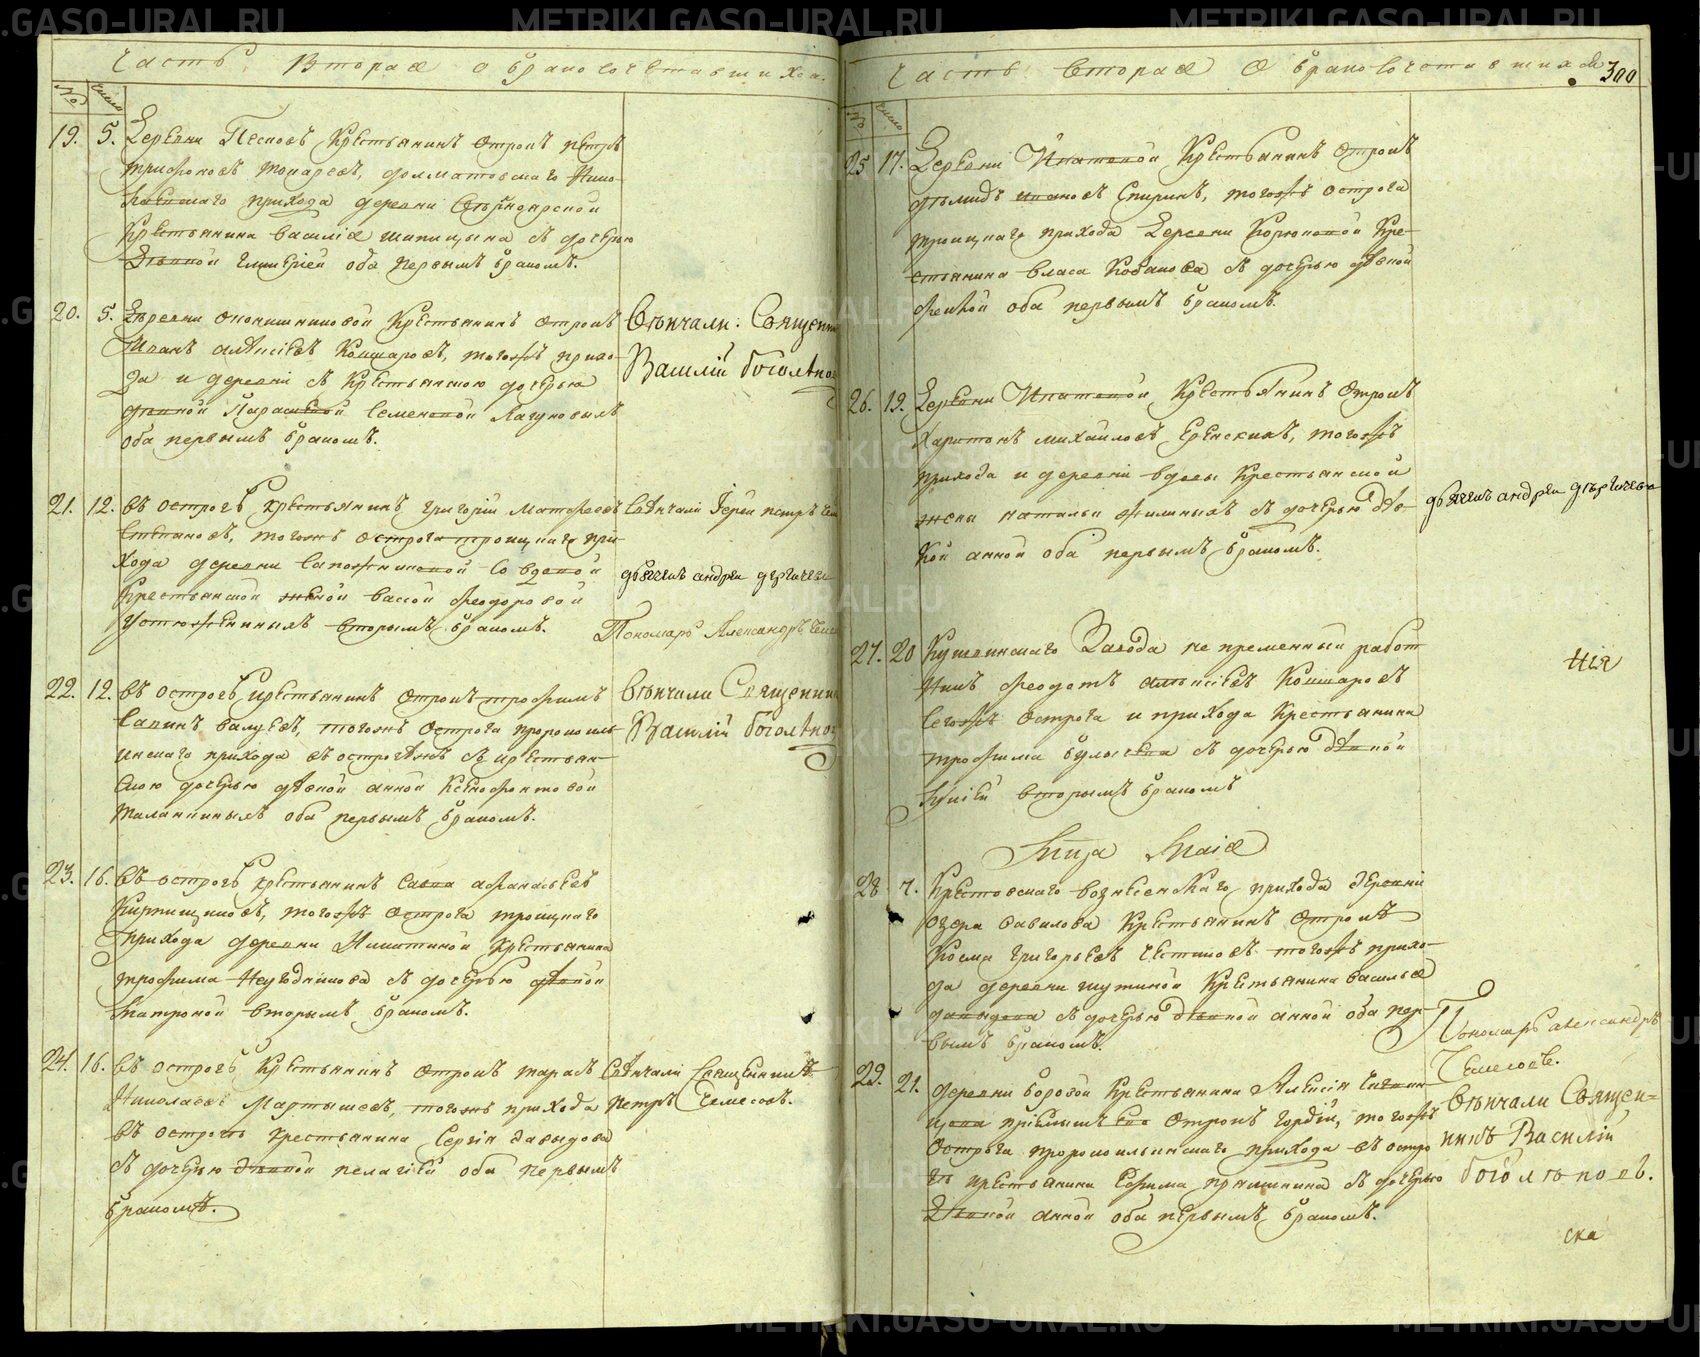 METRIKI.GASO-URAL.RU
Часть Вторая о бракосочетавшихся.
№ число
19. 5. Деревни Песков Крестьянинъ отрокъ петръ
трифоновъ токаревъ, долматовскаго Нико-
лаевскаго прихода деревни
Крестьянина василія шипицына съ дочерью
Девкой Гликеріей оба первымъ бракомъ.
20. 5. Деревни оконишниковой Крестьянинъ отрокъ
Иванъ алексіевъ Кошкаровъ, тогожъ прихо-
да и деревни съ Крестьянскою дочерью
девкой Параскевой Семеновой Лагуновыхъ
оба первымъ бракомъ.
Венчали: Священни
Василій Боголепов
21. 12. въ острогѣ крестьянинъ григорій матфеевъ
Степановъ, тогожъ острога троицкаго при-
хода деревни Сапожниковой со вдовой
Крестьянской женой вассой феодоровой
Устюжениныхъ вторымъ бракомъ.
Венчали Іерей петръ
дьячекъ андрей дягилевъ
Пономарь Александръ
22. 12. въ острогѣ крестьянинъ отрокъ трофимъ
Савинъ валуевъ, тогожъ острога пророкоиль-
инскаго прихода въ острогѣжъ съ крестьян-
скою дочерью девкой анной Ксенофонтовой
Маланьиныхъ оба первымъ бракомъ.
Венчали Священник
Василій Боголепов
23. 16. въ острогѣ крестьянинъ Савва афанасьевъ
Кирпищиковъ, тогожъ острога троицкаго
прихода деревни Никитиной крестьянина
трофима Неугодникова съ дочерью девкой
Матроной вторымъ бракомъ.
24. 16. въ острогѣ Крестьянинъ отрокъ тарасъ
Николаевъ Мартышевъ, тогожъ прихода
въ острогѣ крестьянина Сергія давыдова
съ дочерью девкой пелагіей оба первымъ
бракомъ.
Венчали Священникъ
Петръ Чемесовъ.
Часть вторая о бракосочетавшихся
300
№ число
25 17. Деревни Ипатовой Крестьянинъ отрокъ
Спиринъ, тогожъ острога
троицкаго прихода Деревни Корюковой Кре-
стьянина власа Кобакова съ дочерью девкой
феклой оба первымъ бракомъ.
26. 19. Деревни Ипатовой Крестьянинъ отрокъ
Харитонъ михайловъ Еренскихъ, тогожъ
прихода и деревни вдовы Крестьянской
жены натальи филиныхъ съ дочерью дев-
кой анной оба первымъ бракомъ.
дьячекъ андрей дягилевъ
27. 20 Кушвинскаго Завода не пременный работ
никъ феодотъ алексіевъ Кошкаровъ
Сегожъ острога и прихода Крестьянина
трофима с дочерью девкой
вторымъ бракомъ
нія
Месяца Маія
28 7. Крестовскаго вознесенскаго прихода деревни
озера Савилова Крестьянинъ отрокъ
Косма григорьевъ Сестковъ тогожъ прихо-
да деревни шутиной Крестьянина василья
давыдова съ дочерью девкой анной оба пер-
вымъ бракомъ.
Пономарь александръ
Чемесовъ.
29. 21. деревни боровой Крестьянина Алексія
пріемышъ его отрокъ гордій, тогожъ
острога пророкоильинскаго прихода въ остро
ге крестьянина Ефима пряшнина съ дочерью
Девкой анной оба первымъ бракомъ.
Венчали Священ=
никъ Василій
боголеповъ.
ска
METRIKI.GASO-URAL.RU